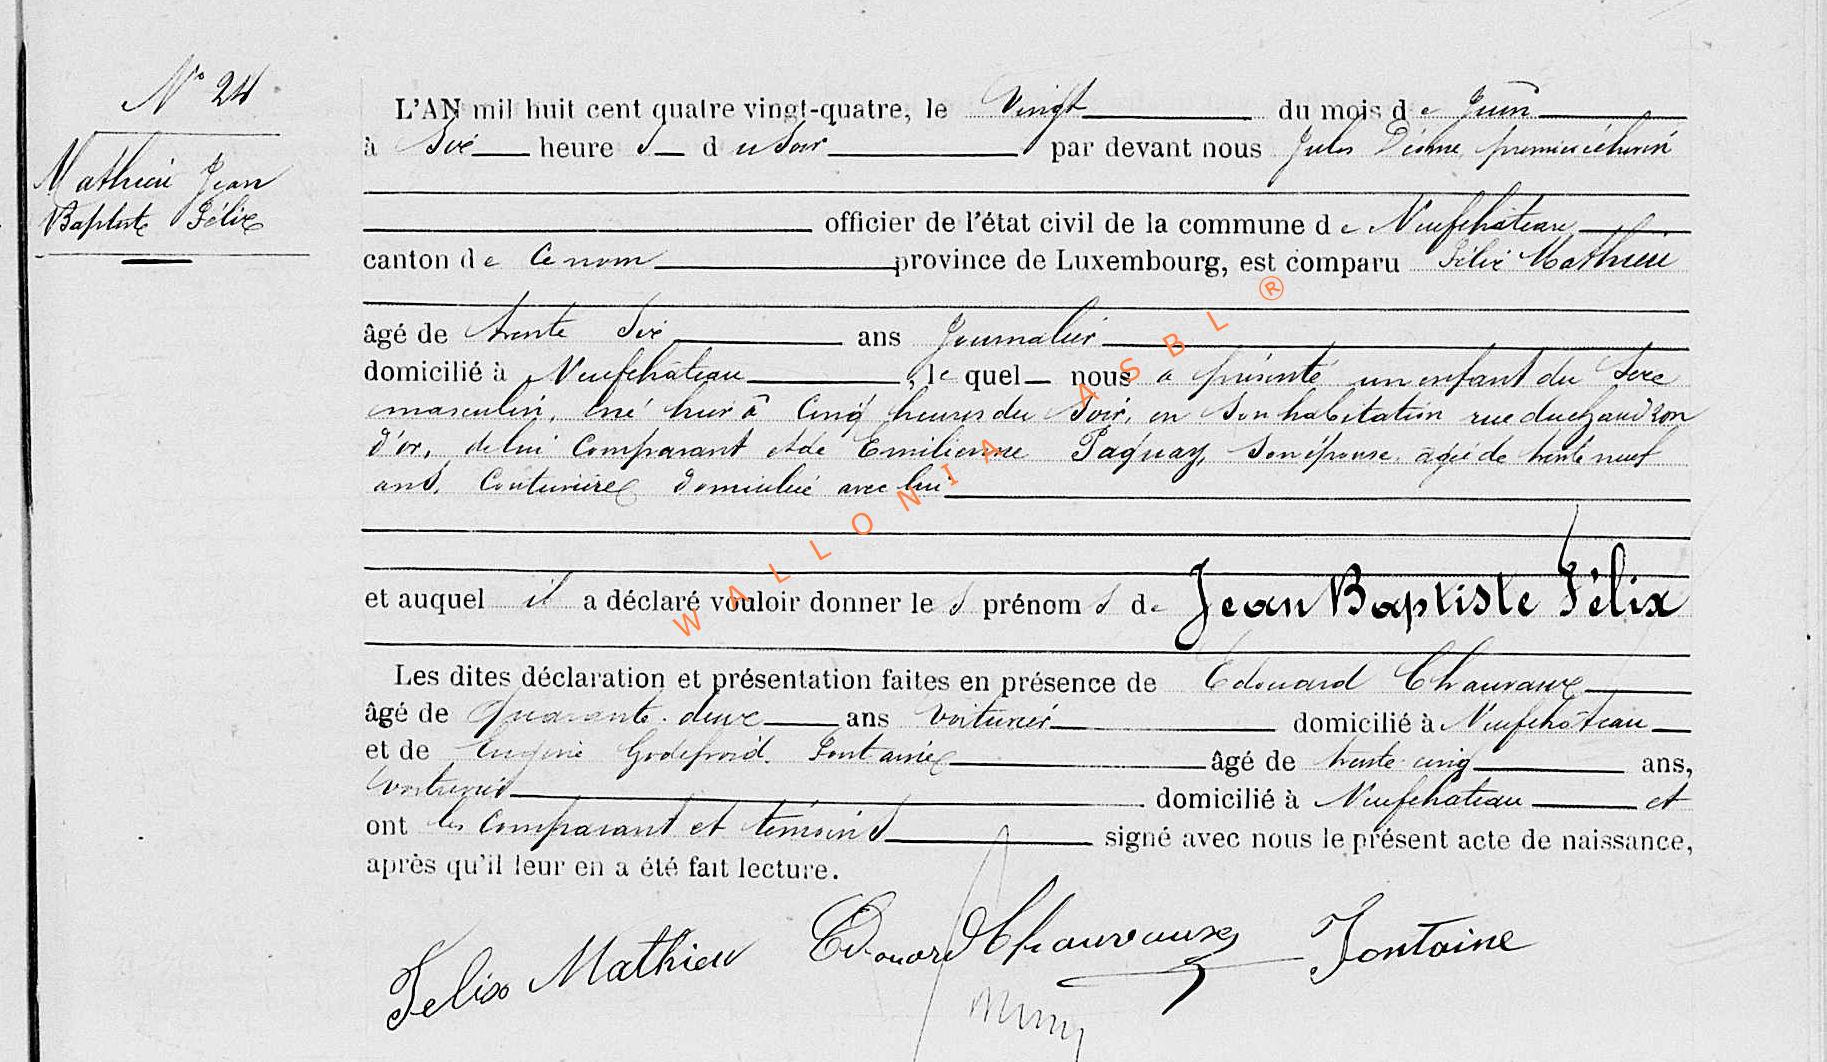 N° 24
Mathieu Jean
Baptiste Félix
L'AN mil huit cent quatre vingt-quatre, le vingt du mois de Juin
à Six heures du Soir par devant nous Jules premier échevin
officier de l'état civil de la commune de Neufchâteau
canton de Ce nom province de Luxembourg, est comparu Félix Mathieu
âgé de trente Six ans Journalier
domicilié à Neufchâteau, le quel nous a présenté un enfant du Sexe
masculin, né hier à Cinq heures du Soir, en Son habitation rue du chaudron
d'or, de lui Comparant et de Emilienne Paquay, Son épouse, agée de trente neuf
ans, Couturière domiciliée avec lui
et auquel il a déclaré vouloir donner les prénoms de Jean Baptiste Félix
Les dites déclaration et présentation faites en présence de Edouard Chauvaux
âgé de Quarante-deux ans Voiturier domicilié à Neufchâteau
et de Eugène Godefroid Fontaine âgé de trente-cinq ans,
Voiturier domicilié à Neufchateau et
ont les Comparant et témoins signé avec nous le présent acte de naissance,
après qu'il leur en a été fait lecture.
Felix Mathieu Edouard Chauvaux Fontaine
WALLONIA ASBL ®